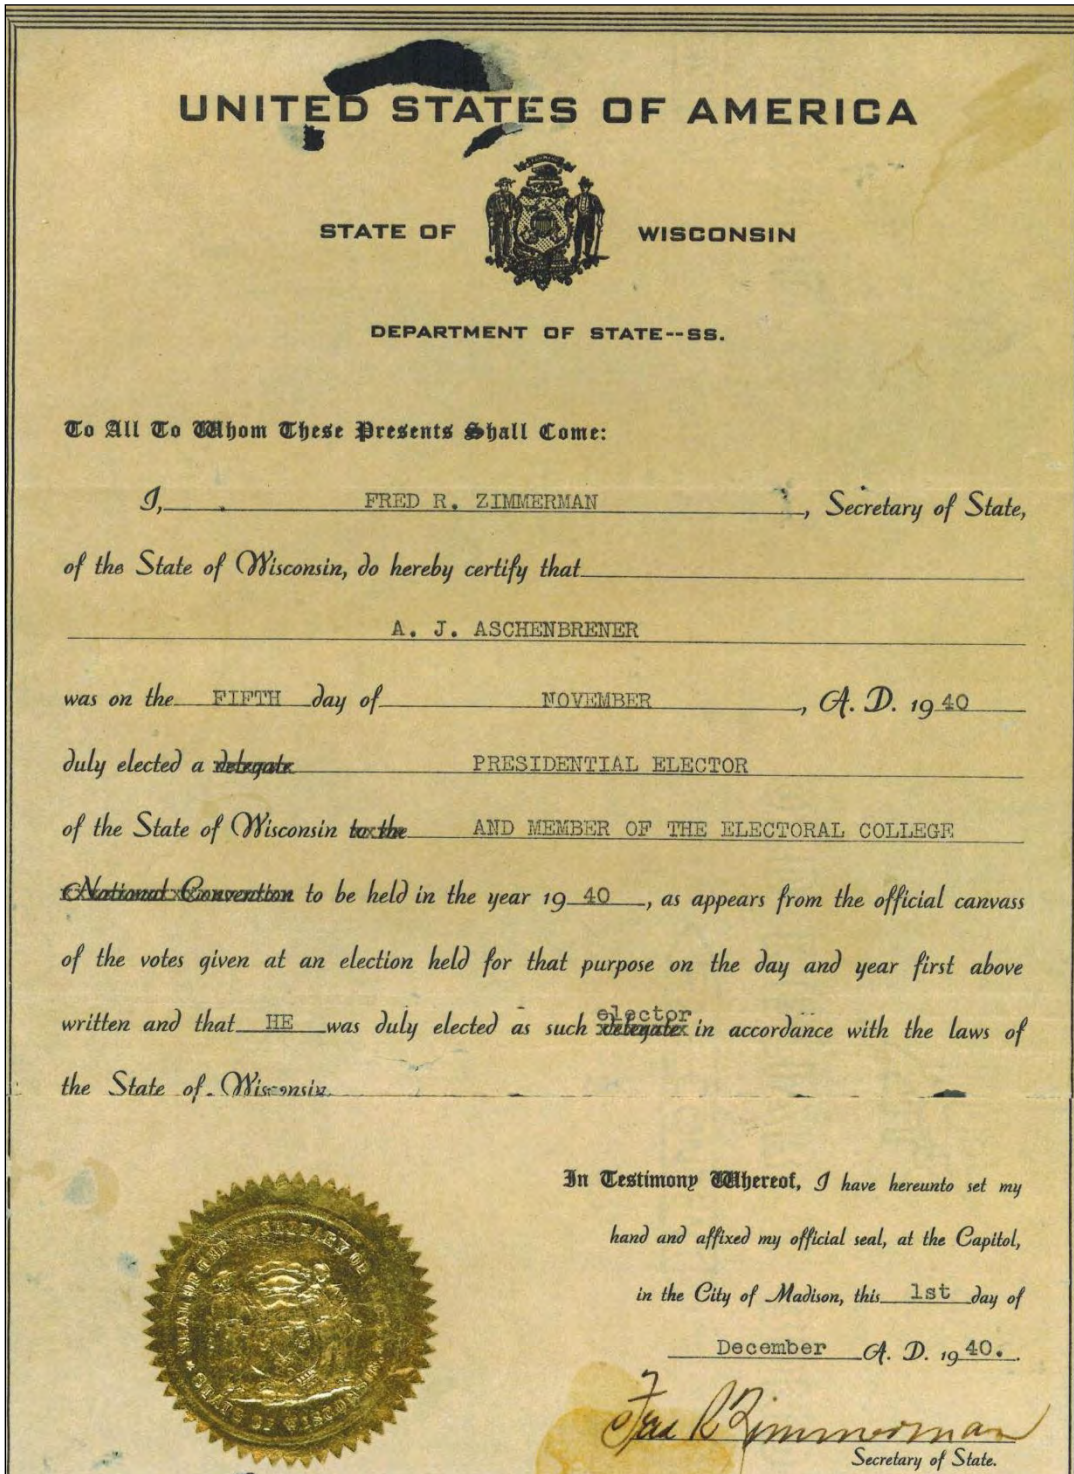 UNITED STATES OF AMERICA
STATE OF WISCONSIN
DEPARTMENT OF STATE--SS.
To All To Whom These Presents Shall Come:
I, FRED R. ZIMMERMAN, Secretary of State,
of the State of Wisconsin, do hereby certify that
A. J. ASCHENBRENER
was on the FIFTH day of NOVEMBER, A. D. 1940
duly elected a delegate PRESIDENTIAL ELECTOR
of the State of Wisconsin to the AND MEMBER OF THE ELECTORAL COLLEGE
National Convention to be held in the year 1940, as appears from the official canvass
of the votes given at an election held for that purpose on the day and year first above
written and that HE was duly elected as such delegate elector in accordance with the laws of
the State of Wisconsin.
In Testimony Whereof, I have hereunto set my
hand and affixed my official seal, at the Capitol,
in the City of Madison, this 1st day of
December A. D. 1940.
Fred R Zimmerman
Secretary of State.
SEAL OF THE SECRETARY OF
STATE OF WISCONSIN